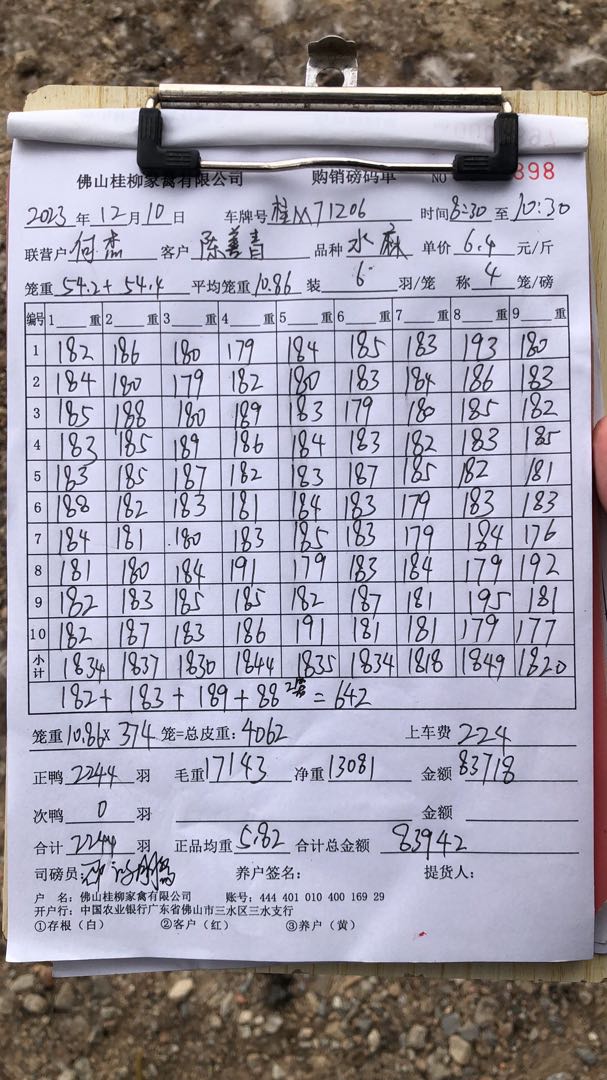 佛山桂柳家禽有限公司 购销磅码单 NO 898
2023年12月10日 车牌号 桂M71206 时间8:30至10:30
联营户 何杰 客户 陈善青 品种 水麻 单价 6.4 元/斤
笼重 54.2+54.4 平均笼重 10.86 装 6 羽/笼 称 4 笼/磅
编号 1 重 2 重 3 重 4 重 5 重 6 重 7 重 8 重 9 重
1 182 186 180 179 184 185 183 193 180
2 184 180 179 182 180 183 184 186 183
3 185 188 180 189 183 179 180 185 182
4 183 185 189 186 184 183 182 183 185
5 183 185 187 182 183 187 185 182 181
6 188 182 183 181 184 183 179 183 183
7 184 181 180 183 185 183 179 184 176
8 181 180 184 191 179 183 184 179 192
9 182 183 185 185 182 187 181 195 181
10 182 187 183 186 191 181 181 179 177
小计 1834 1837 1830 1844 1835 1834 1818 1849 1820
182+183+189+88 2笼=642
笼重 10.86×374 笼=总皮重: 4062 上车费 224
正鸭 2244 羽 毛重 17143 净重 13081 金额 83718
次鸭 0 羽 金额
合计 2244 羽 正品均重 5.82 合计总金额 83942
司磅员: 养户签名: 提货人:
户 名: 佛山桂柳家禽有限公司 账号: 444 401 010 400 169 29
开户行: 中国农业银行广东省佛山市三水区三水支行
①存根（白） ②客户（红） ③养户（黄）